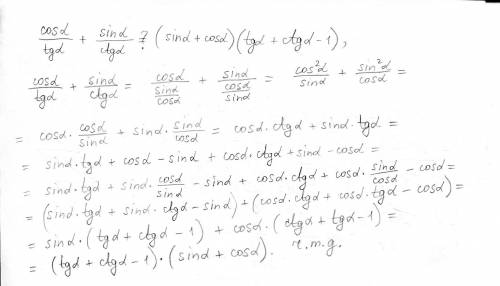 cosα/tgα + sinα/ctgα ? (sinα + cosα)(tgα + ctgα - 1),
cosα/tgα + sinα/ctgα = cosα/(sinα/cosα) + sinα/(cosα/sinα) = cos²α/sinα + sin²α/cosα =
= cosα · cosα/sinα + sinα · sinα/cosα = cosα · ctgα + sinα · tgα =
= sinα · tgα + cosα - sinα + cosα · ctgα + sinα - cosα =
= sinα · tgα + sinα · cosα/sinα - sinα + cosα · ctgα + cosα · sinα/cosα - cosα =
= (sinα · tgα + sinα · ctgα - sinα) + (cosα · ctgα + cosα · tgα - cosα) =
= sinα · (tgα + ctgα - 1) + cosα · (ctgα + tgα - 1) =
= (tgα + ctgα - 1) · (sinα + cosα). r.m.g.